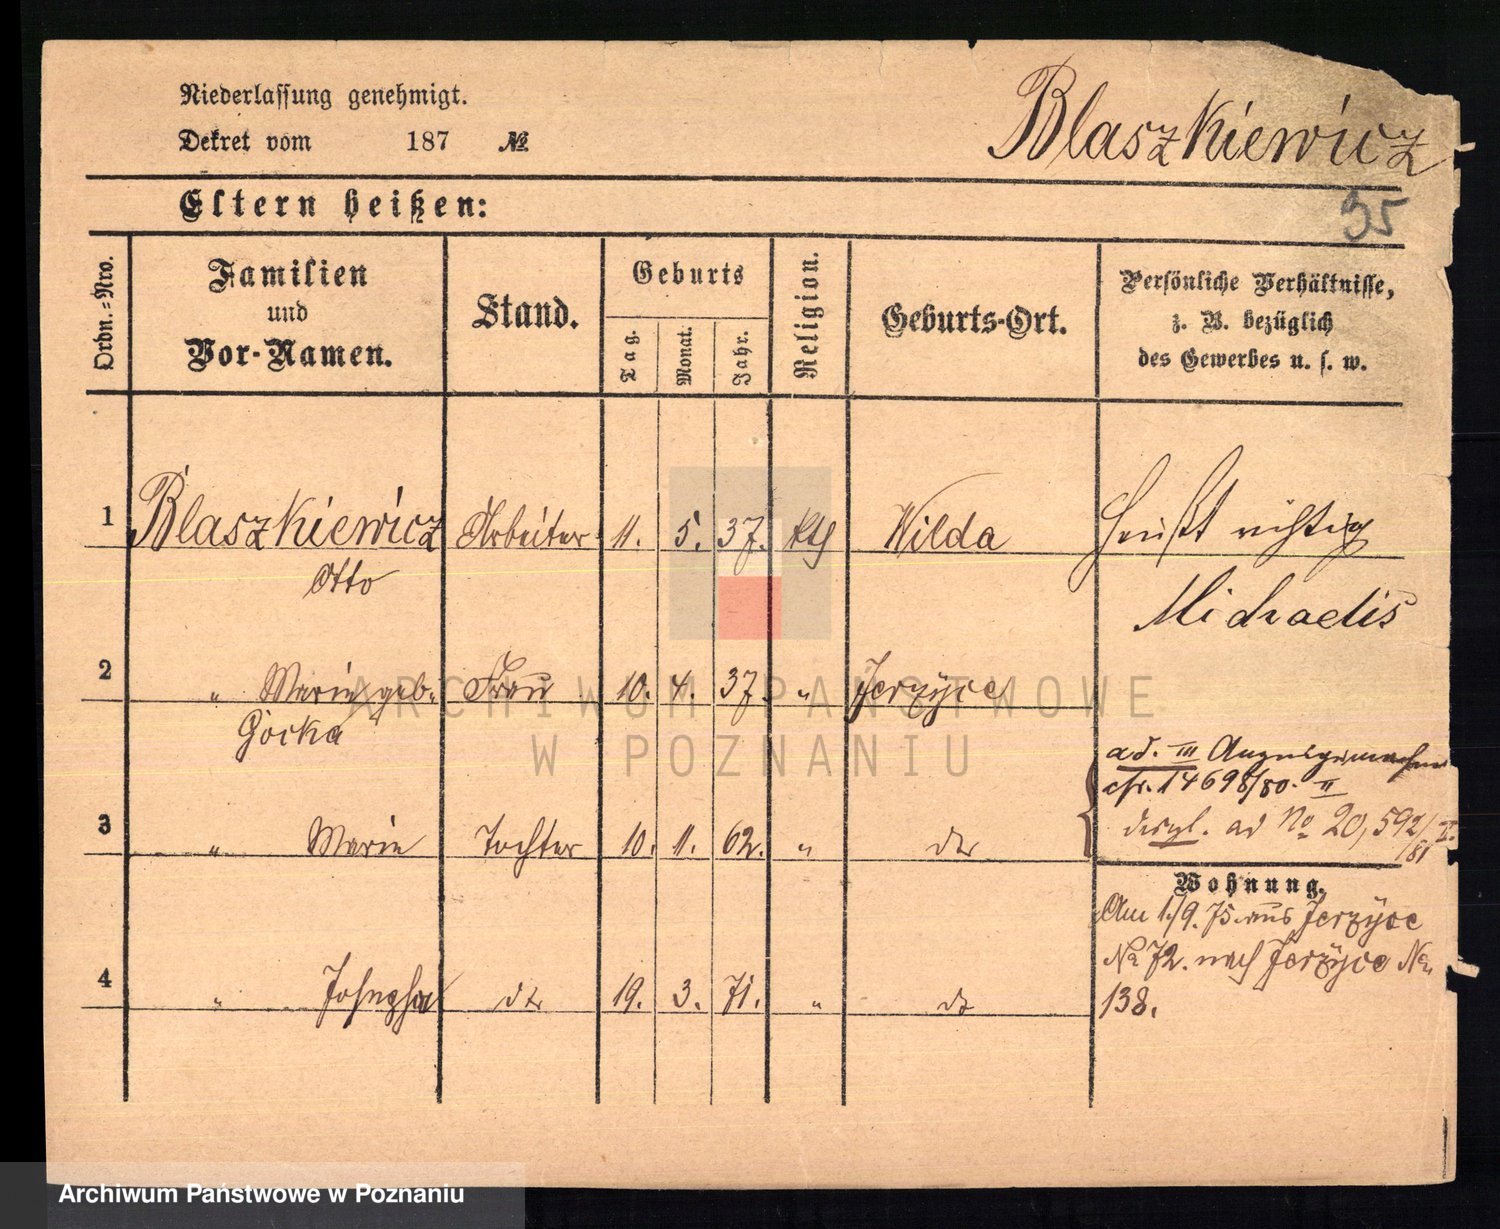 Niederlassung genehmigt.
Dekret vom 187 №
Blaszkiewicz
Eltern heißen:
35
Ordn.-Nro.
Familien
und
Vor-Namen.
Stand.
Geburts
Tag.
Monat.
Jahr.
Religion.
Geburts-Ort.
Persönliche Verhältnisse,
z. B. bezüglich
des Gewerbes u. s. w.
1 Blaszkiewicz Arbeiter 11. 5. 37. kth Wilda
Otto
heißt richtig
Michaelis
2 " Marie geb. Frau 10. 4. 37. " Jerzyce
Gocka
3 " Marie Tochter 10. 11. 62. " dto
ad. III
cfr. 14698/80. II
desgl. ad No 20,592/81 I.
Wohnung.
Am 1./9. 75. aus Jerzyce
No 72. nach Jerzyce No
138.
4 " Josepha dto 19. 3. 71. " dto
ARCHIWUM PAŃSTWOWE
W POZNANIU
Archiwum Państwowe w Poznaniu